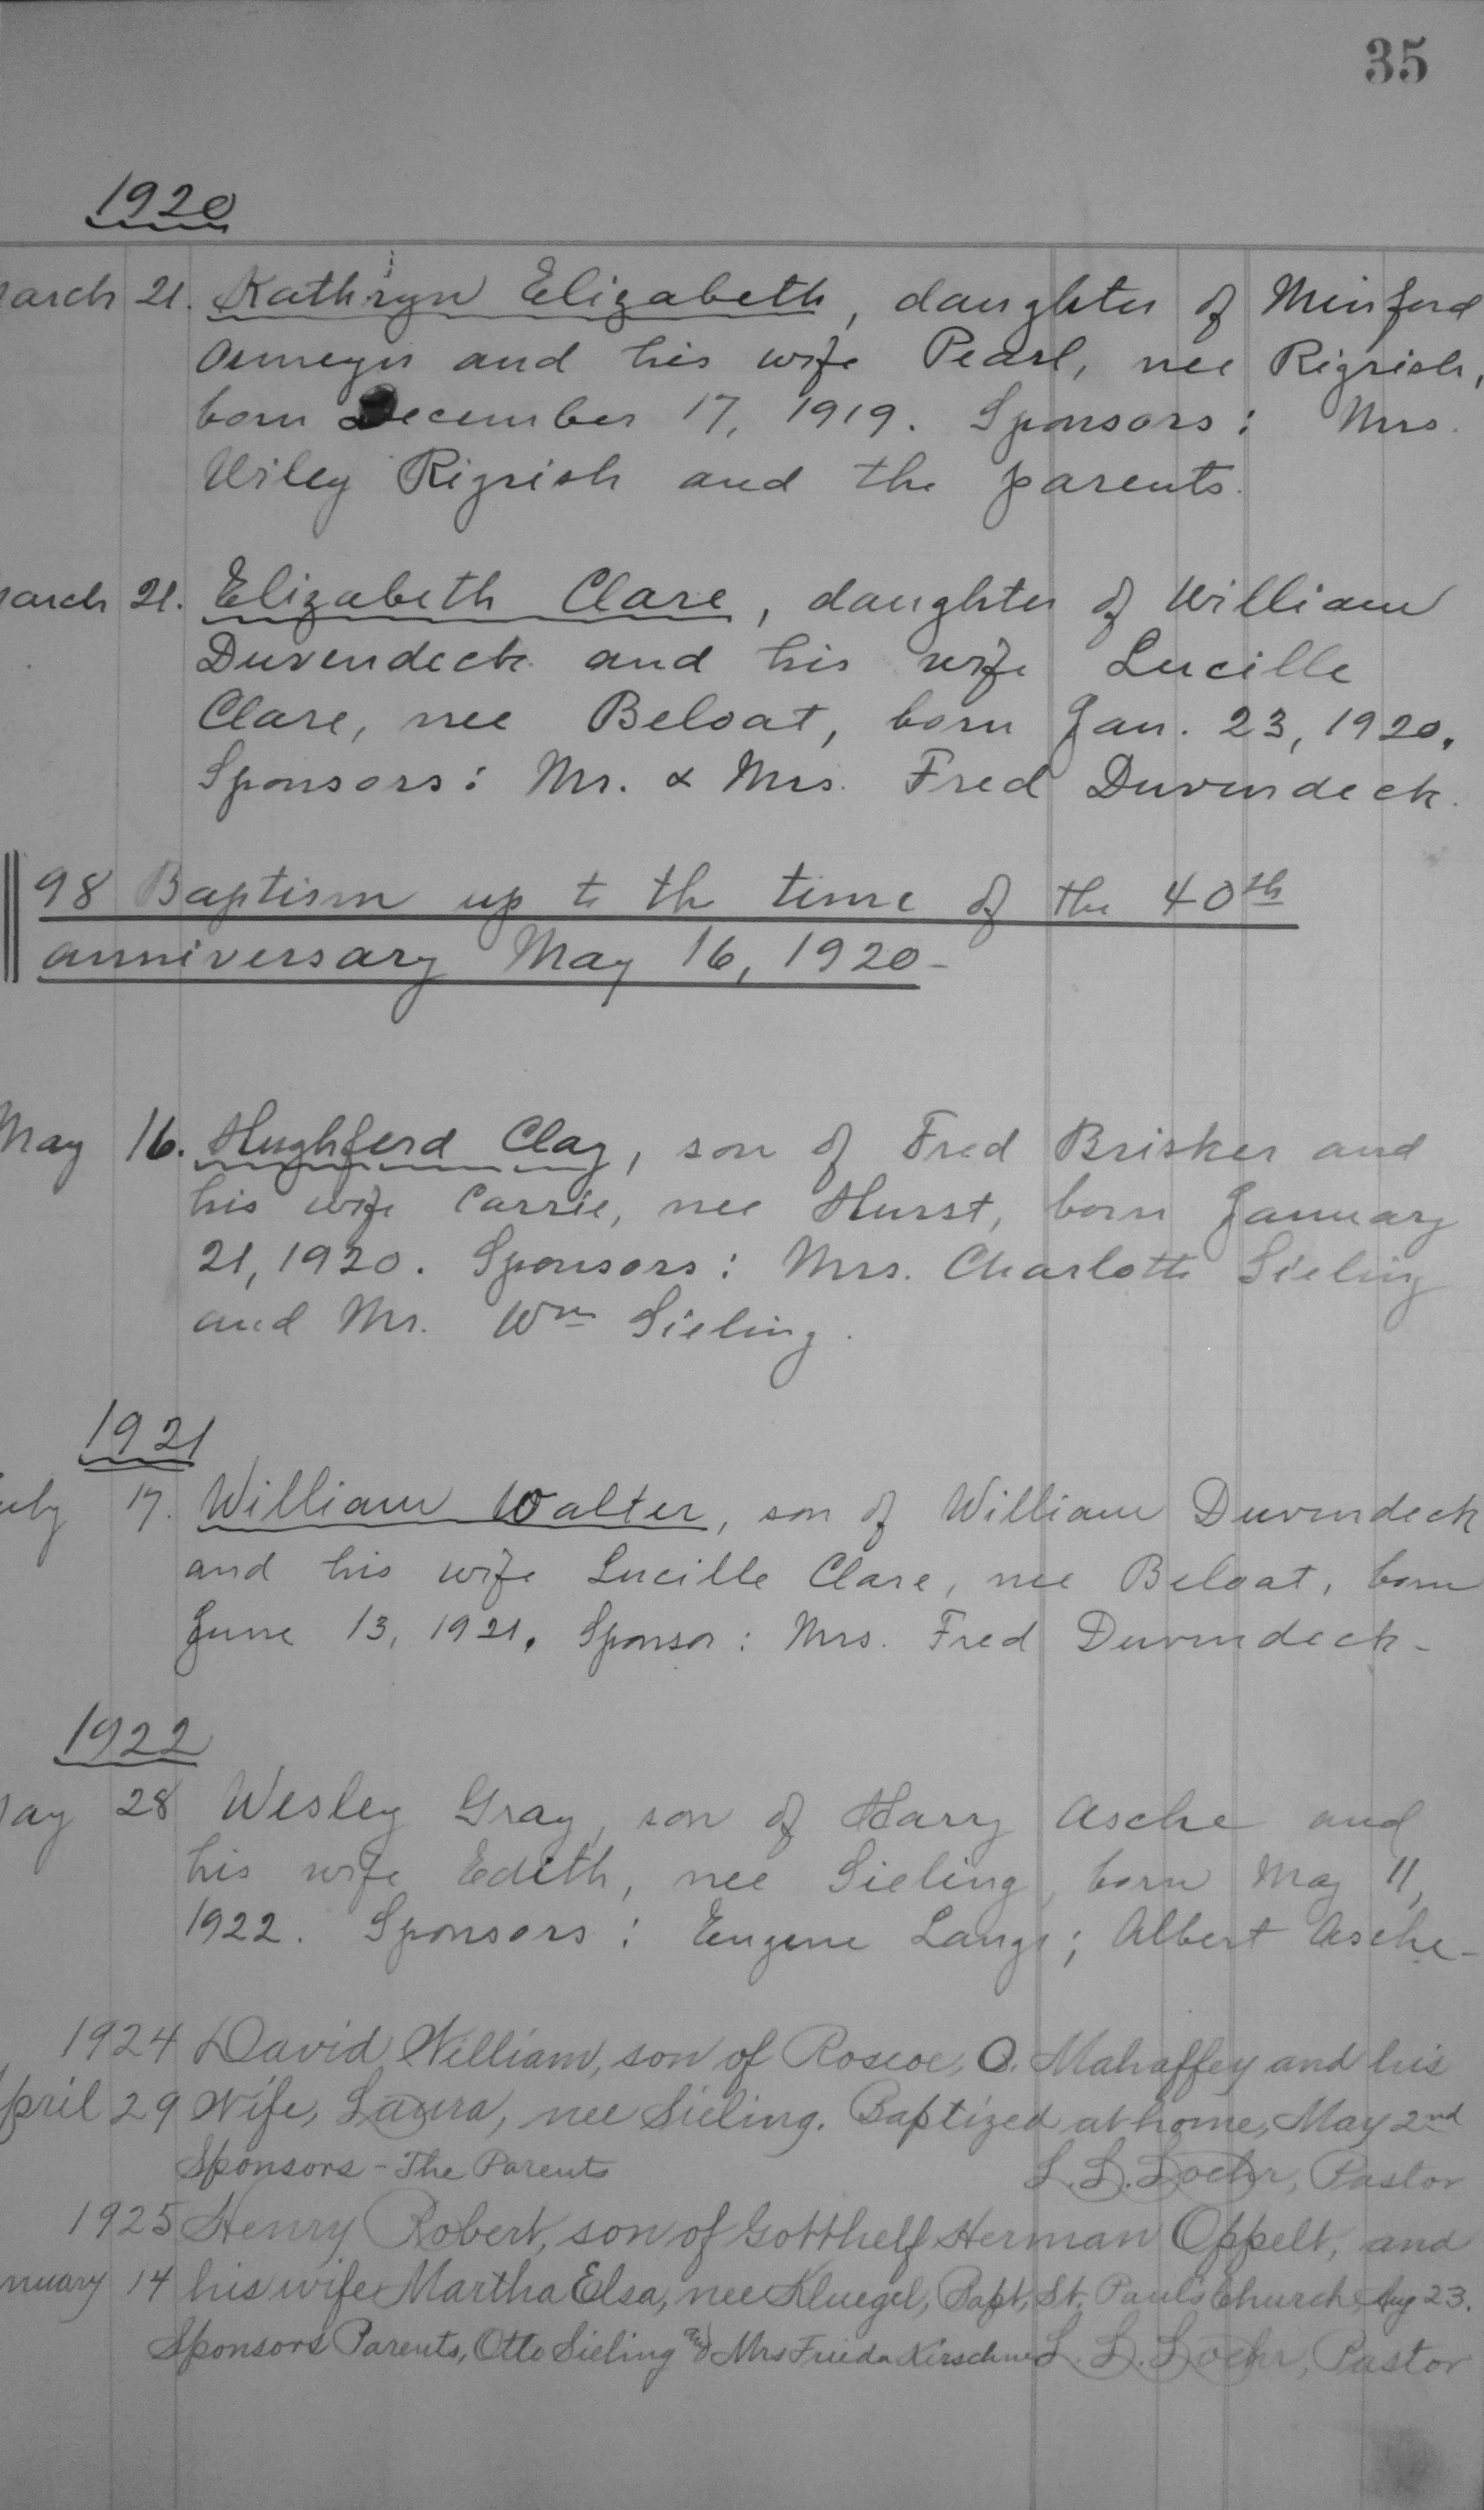 35
1920
arch 21. Kathryn Elizabeth, daughter of Minford
and his wife Pearl, nee Rigrish,
born December 17, 1919. Sponsors: Mrs.
Wiley Rigrish and the parents.
arch 21. Elizabeth Clare, daughter of William
Duvendeck and his wife Lucille
Clare, nee Beloat, born Jan. 23, 1920.
Sponsors: Mr. & Mrs. Fred Duvendeck.
98 Baptism up to th time of the 40th
anniversary May 16, 1920-
May 16. Hughferd Clay, son of Fred Brisker and
his wife Carrie, nee Hurst, born January
21, 1920. Sponsors: Mrs. Charlotte Sieling
and Mr. Wm Sieling.
1921
uly 17. William Walter, son of William Duvendeck
and his wife Lucille Clare, nee Beloat, born
June 13, 1921. Sponsor: Mrs. Fred Duvendeck-
1922
ay 28 Wesley Gray, son of Harry Asche and
his wife Edith, nee Sieling, born May 11,
1922. Sponsors: Eugene Lange; Albert Asche-
1924 David William, son of Roscoe, O. Mahaffey and his
pril 29 Wife, Laura, nee Sieling. Baptized at home, May 2nd
Sponsors - The Parents L. L. Loehr, Pastor
1925 Henry Robert, son of Gotthelf Herman Oppelt, and
nuary 14 his wife Martha Elsa, nee Kluegel, Bapt, St. Paul's Church Aug 23.
Sponsors Parents, Otto Sieling and Mrs Frieda Kirschner L. L. Loehr, Pastor